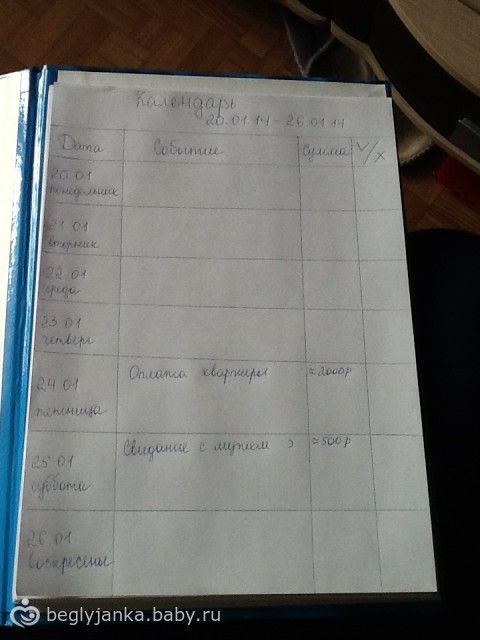 Календарь
20.01.14 - 26.01.14
Дата Событие Сумма V/X
20.01
понедельник
21.01
вторник
22.01
среда
23.01
четверг
24.01 Оплата квартиры ≈2000р
пятница
25.01 Свидание с мужем :) ≈500р
суббота
26.01
воскресенье
beglyjanka.baby.ru